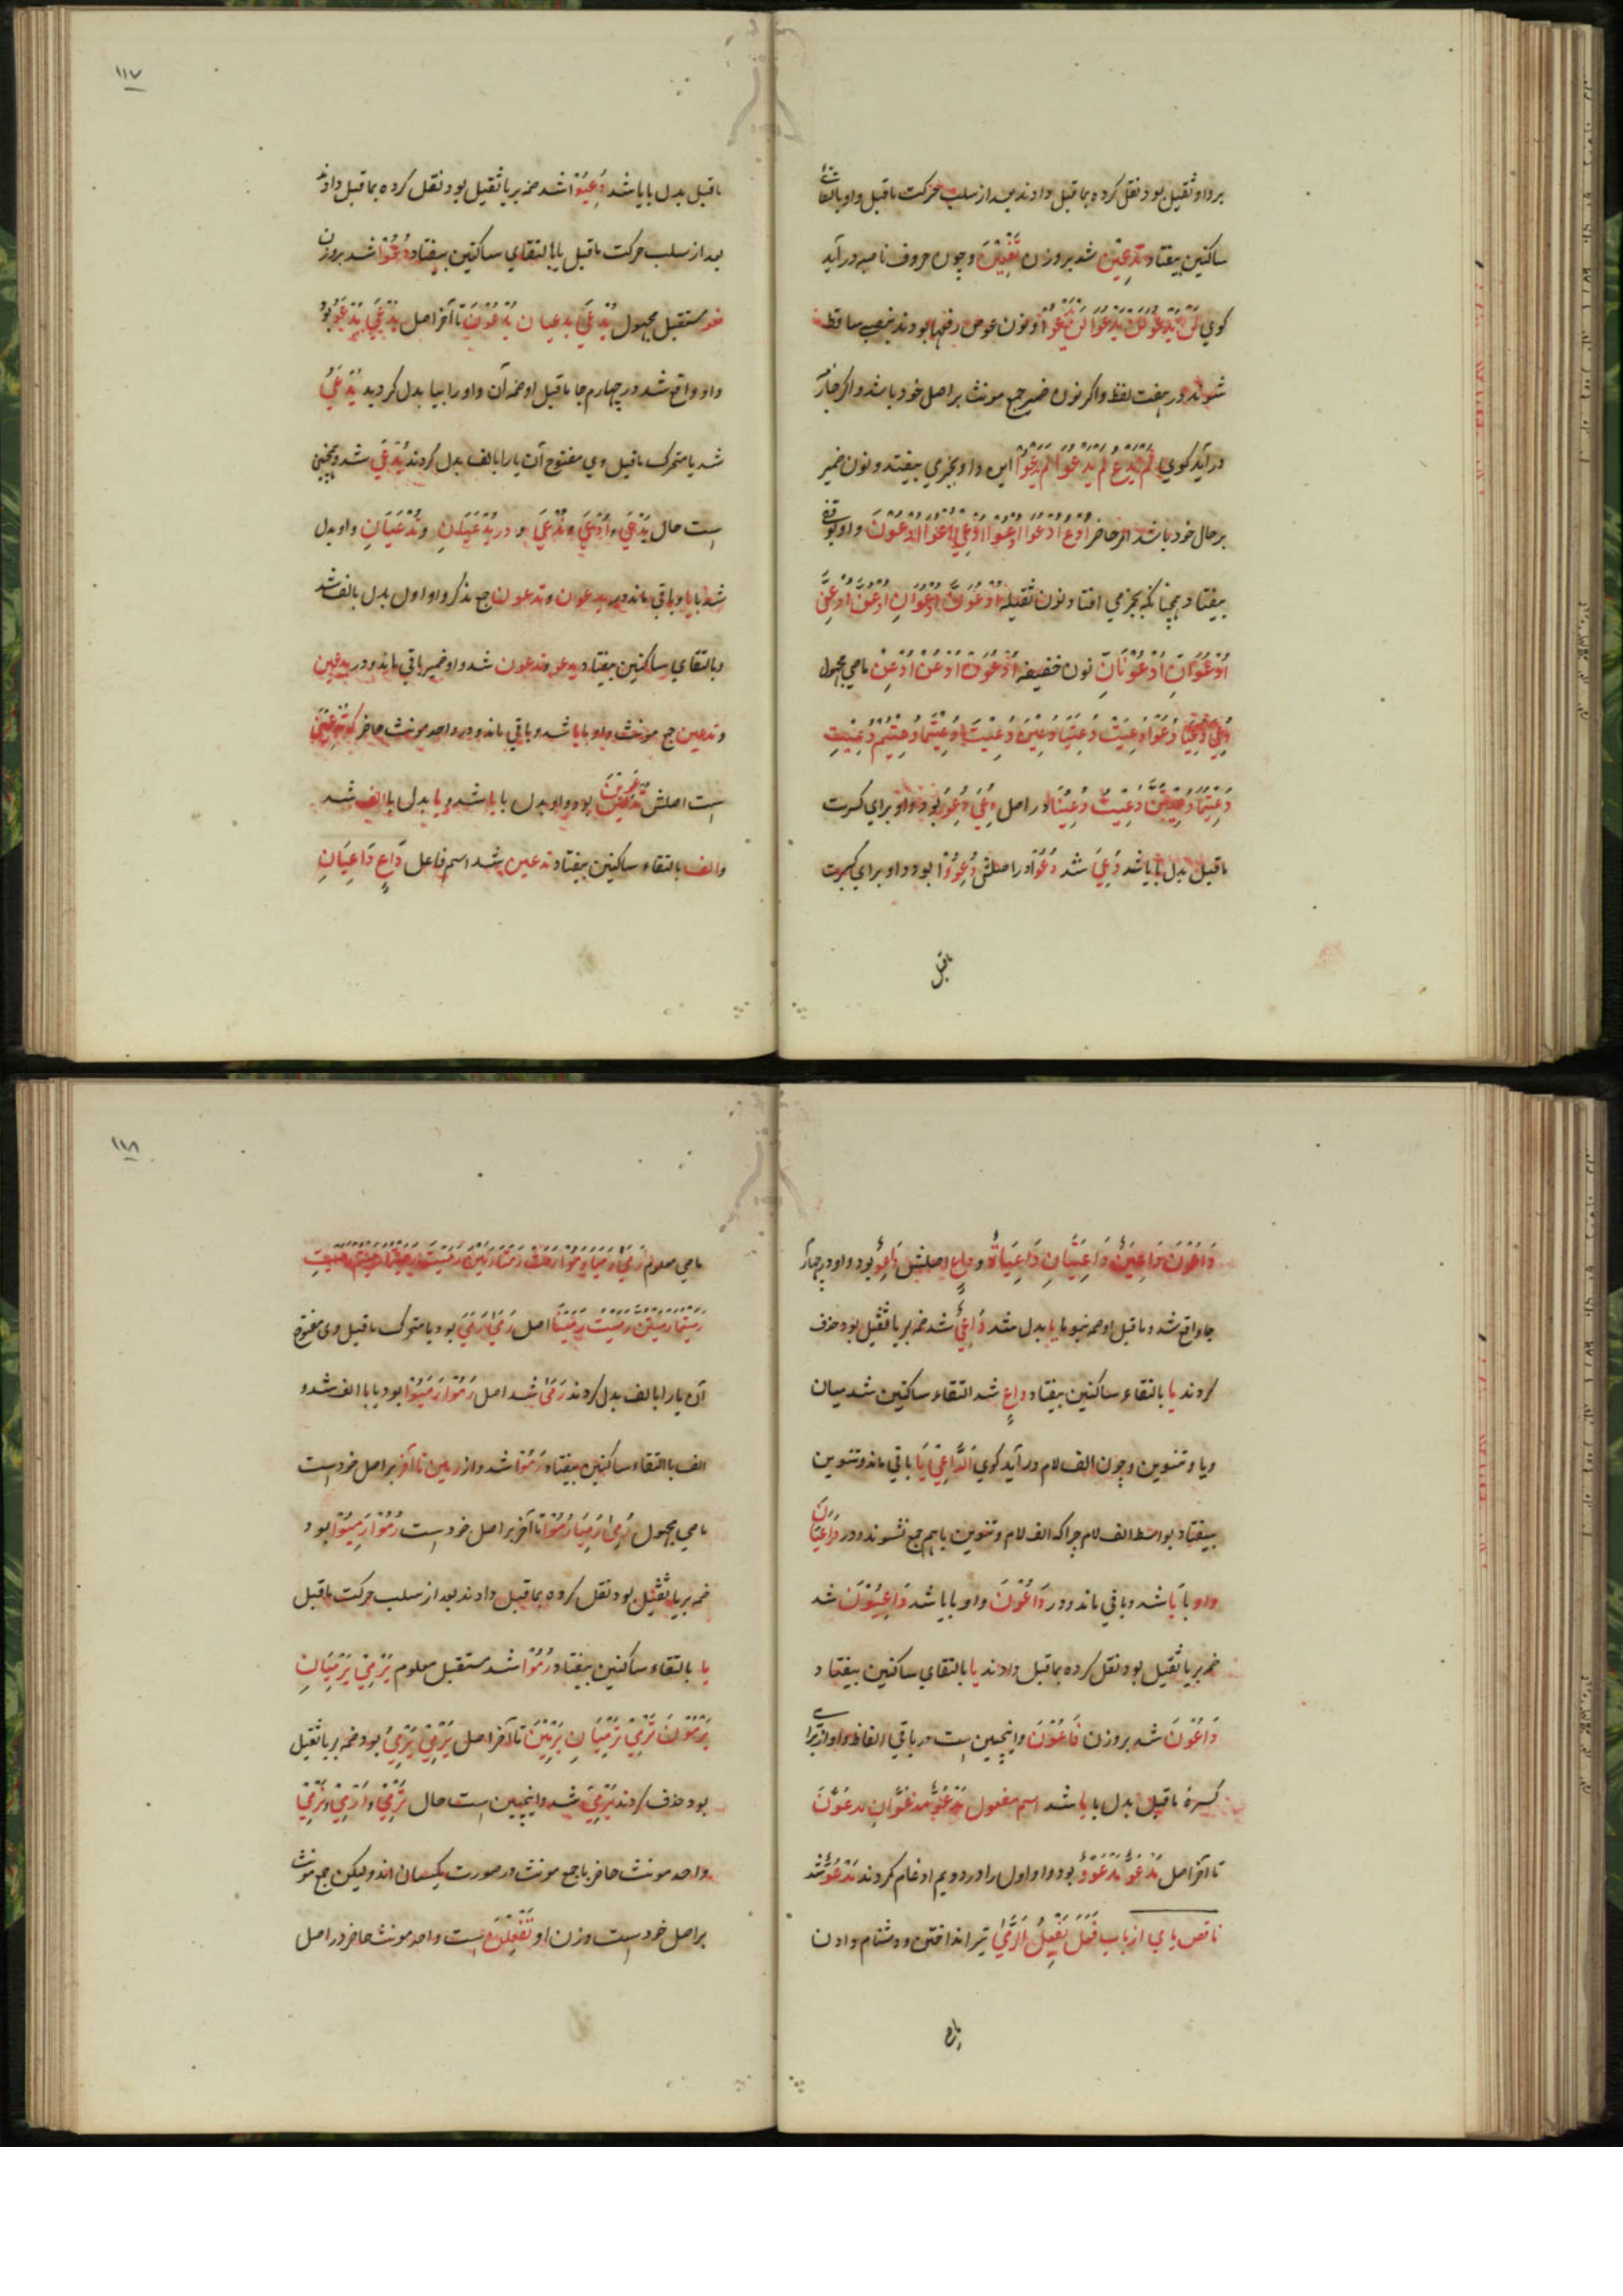 بر واو ثقیل بود نقل کرده بماقبل دادند بعد از سلب حرکت ماقبل واو بالتقای
ساکنین بیفتاد تدعین شد بروزن تفعین و چون حروف ناصبه درآید
کوی لن یدعو لن یدعوا لن یدعوا و نون عوض رفعها بودند بنصب ساقط
شوند در هفت لفظ و اکر نون ضمیر جمع مونث بر اصل خود باشد و اکر جازمه
درآید کوی لم یدع لم یدعوا لم یدعوا این واو بجزمی بیفتد و نون ضمیر
بر حال خود باشد امر حاضر ادع ادعوا ادعوا ادعی ادعوا ادعون واو بوقفی
بیفتاد همچنانکه بجزمی افتاد نون ثقیله ادعون ادعوان ادعن ادعن
ادعوان ادعونان نون خفیفه ادعون ادعن ادعن ماضی مجهول
دعی دعیا دعوا دعیت دعیتا دعین دعیت دعیتما دعیتم دعیت
دعیتما دعیتن دعیت دعینا در اصل دعی دعو بود واو برای کسرت
ماقبل بدل بایا شد دعی شد دعوا در اصلش دعووا بود واو برای کسرت
ماقبل
١١٧
ماقبل بدل بایا شد دعیوا شد ضمه بر یا ثقیل بود نقل کرده بماقبل دادند
بعد از سلب حرکت ماقبل یا بالتقای ساکنین بیفتاد دعوا شد بروزن
فعو مستقبل مجهول یدعی یدعیان یدعون تا آخر اصل یدعی یدعو بود
واو واقع شد در چهارم جا ماقبل او ضمه آن واو را بیا بدل کردید یدعی
شد یا متحرک ماقبل وی مفتوح آن یا را بالف بدل کردند یدعی شد و همچنین
است حال تدعی و ادعی و ندعی و در یدعیان و تدعیان واو بدل
شد بایا و یا باقی ماند و در یدعون و تدعون جمع مذکر واو اول بدل بالف شد
و بالتقای ساکنین بیفتاد یدعو وتدعون شد واو ضمیر باقی ماند و در یدعین
و تدعین جمع مونث واو بایا شد و باقی ماند و در واحد مونث حاضر که تدعین
است اصلش تدعوین بود واو بدل بایا شد و یا بدل با الف شد
والف بالتقاء ساکنین بیفتاد تدعین شد اسم فاعل داع داعیان
داعون داعیة داعیتان داعیاة و داع اصلش داعو بود واو در چهارم
جا واقع شد و ماقبل او ضمه نبو بایا بدل شد داعی شد ضمه بر یا ثقیل بود حذف
کردند یا بالتقاء ساکنین بیفتاد داع شد التقاء ساکنین شد میان
و یا و تنوین و چون الف لام درآید کوی الداعی یا باقی ماند و تنوین
بیفتاد بواسطه الف لام چراکه الف لام و تنوین باهم جمع نشوند و در داعیان
واو با یا شد و باقی ماند و در داعون واو با یا شد داعیون شد
ضمه بر یا ثقیل بود نقل کرده بماقبل دادند یا بالتقای ساکنین بیفتاد
داعون شد بروزن فاعون و اینچنین است در باقی الفاظ واو از برای
کسرهٔ ماقبل بدل بایا شد اسم مفعول مدعو مدعوان مدعون
تا آخر اصل مدعو مدعوو بود واو اول را در دویم ادغام کردند مدعو شد
ناقص یایی از باب فعل یفعل الرمی تیر انداختن و دشنام دادن
١١٨
ماضی معلوم رمی رمیا رموا رمت رمتا رمین رمیت رمیتما رمیتم رمیت
رمیتما رمیتن رمیت رمینا اصل رمی رمی بود یا متحرک ماقبل وی مفتوح
آن یا را بالف بدل کردند رمی شد اصل رموا رمیوا بود یا با الف شد و
الف با التقاء ساکنین بیفتاد رموا شد و از رمین تا آخر بر اصل خود است
ماضی مجهول رمی رمیا رموا تا آخر بر اصل خود است رموا رمیوا بود
ضمه بر یا ثقیل بود نقل کرده بماقبل دادند بعد از سلب حرکت ماقبل
یا بالتقاء ساکنین بیفتاد رموا شد مستقبل معلوم یرمی یرمیان
یرمون ترمی ترمیان یرمین تا آخر اصل یرمی یرمی بود ضمه بر یا ثقیل
بود حذف کردند یرمی شد و اینچنین است حال ترمی و ارمی و نرمی
واحد مونث حاضر با جمع مونث در صورت یکسان اند و لیکن جمع مونث
بر اصل خود است وزن او تفعلن است واحد مونث حاضر در اصل